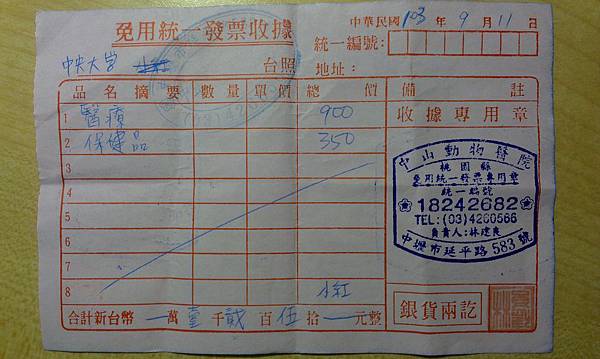 免用統一發票收據
中華民國103年9月11日
統一編號:
中央大宮 台照
地址:
品名摘要 數量 單價 總價 備註
1 醫療 900 收據專用章
2 保健品 350
3
4
5
6
7
8 小紅
合計新台幣 一萬壹千貳百伍拾一元整
銀貨兩訖
中山動物醫院
桃園縣
免用統一發票專用章
統一編號
18242682
TEL:(03)4260566
負責人:林建良
中壢市延平路583號